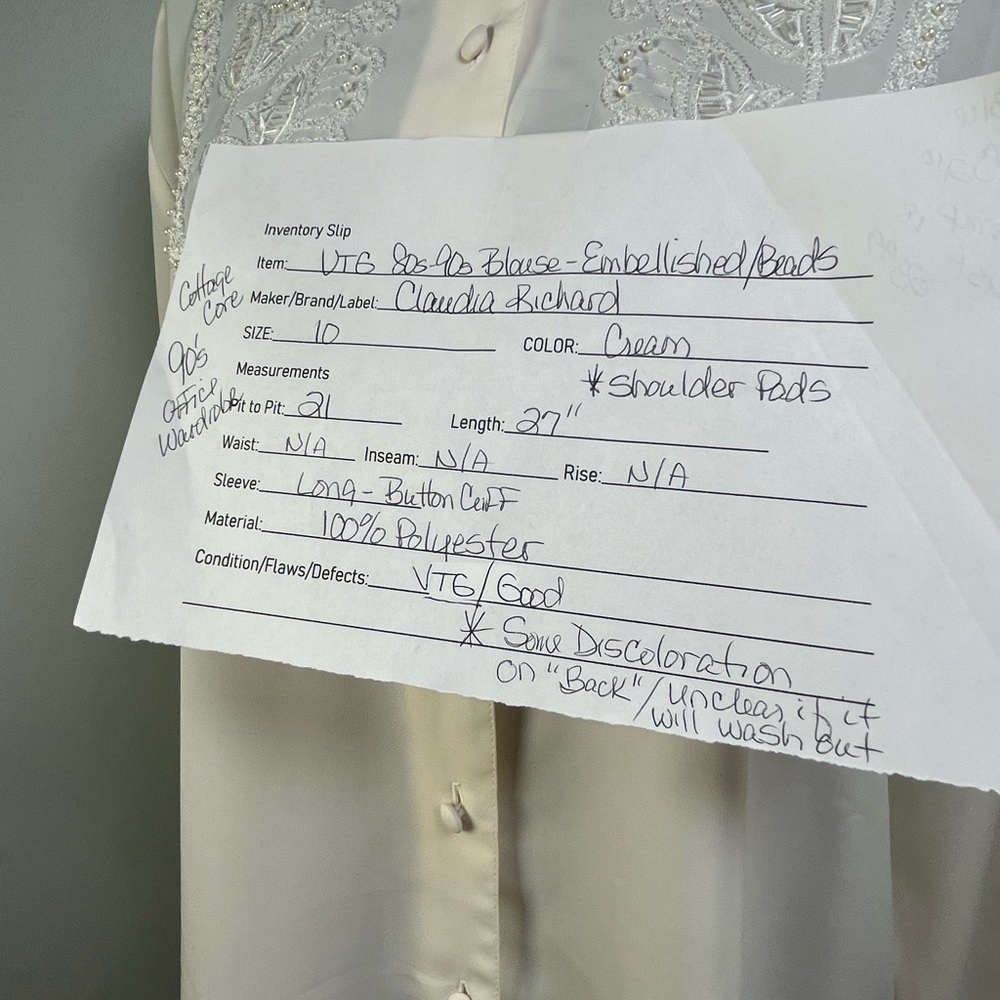 Inventory Slip
Item: VTG 80s-90s Blouse - Embellished/Beads
Maker/Brand/Label: Claudia Richard
SIZE: 10 COLOR: Cream
Measurements
* Shoulder Pads
Pit to Pit: 21 Length: 27"
Waist: N/A Inseam: N/A Rise: N/A
Sleeve: Long - Button Cuff
Material: 100% Polyester
Condition/Flaws/Defects: VTG/Good
* Some Discoloration
on "Back"/unclear if it
will wash out
Cottage
Core
90's
Office
Wardrobe